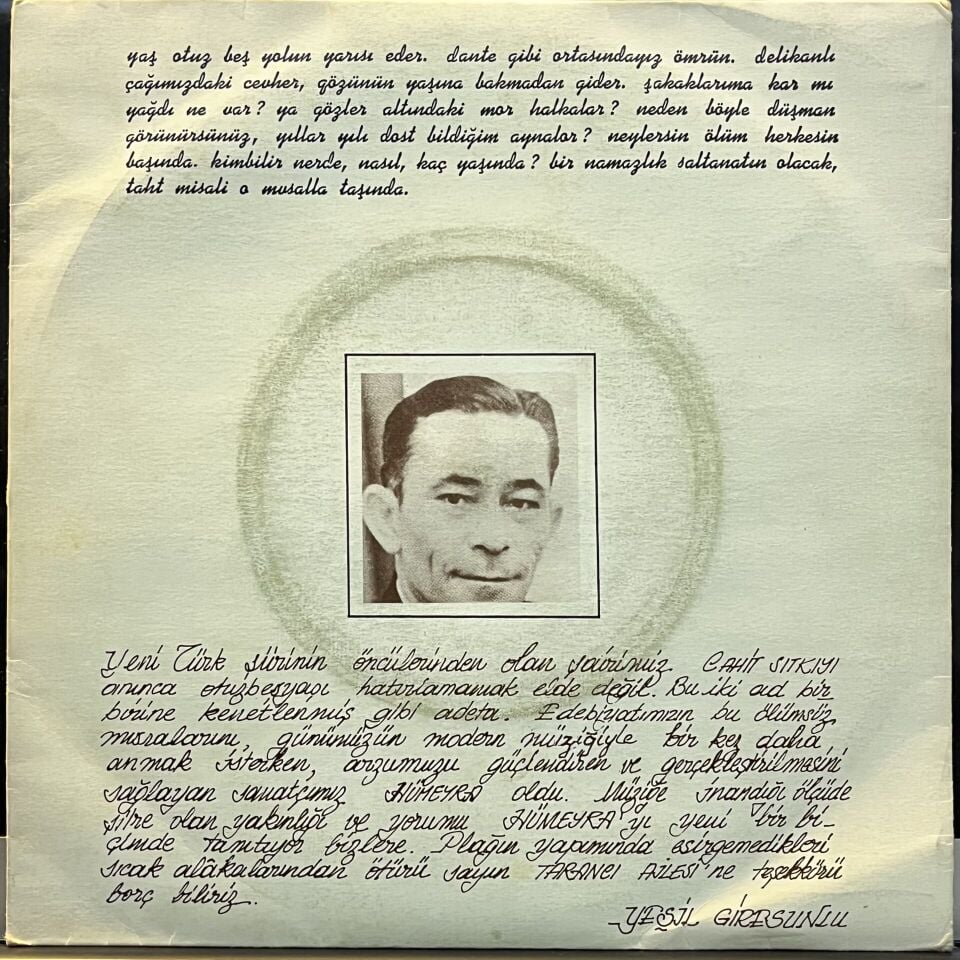 yaş otuz beş yolun yarısı eder. dante gibi ortasındayız ömrün. delikanlı
çağımızdaki cevher, gözünün yaşına bakmadan gider. şakaklarıma kar mı
yağdı ne var? ya gözler altındaki mor halkalar? neden böyle düşman
görünürsünüz, yıllar yılı dost bildiğim aynalor? neylersin ölüm herkesin
başında. kimbilir nerde, nasıl, kaç yaşında? bir namazlık saltanatın olacak,
taht misali o musalla taşında.
Yeni Türk şiirinin öncülerinden olan şairimiz CAHİT SITKIYI
anınca otuzbeşyaşı hatırlamamak elde değil. Bu iki ad bir
birine kenetlenmiş gibi adeta. Edebiyatımızın bu ölümsüz
mısralarını, günümüzün modern müziğiyle bir kez daha
anmak isterken, arzumuzu güçlendiren ve gerçekleştirilmesini
sağlayan sanatçımız HÜMEYRA oldu. Müziğe inandığı ölçüde
şiire olan yakınlığı ve yorumu HÜMEYRA'yı yeni bir bi-
çimde tanıtıyor bizlere. Plağın yapımında esirgemedikleri
sıcak alâkalarından ötürü sayın TARANCI AİLESİ'ne teşekkürü
borç biliriz.
-YEŞİL GİRESUNLU